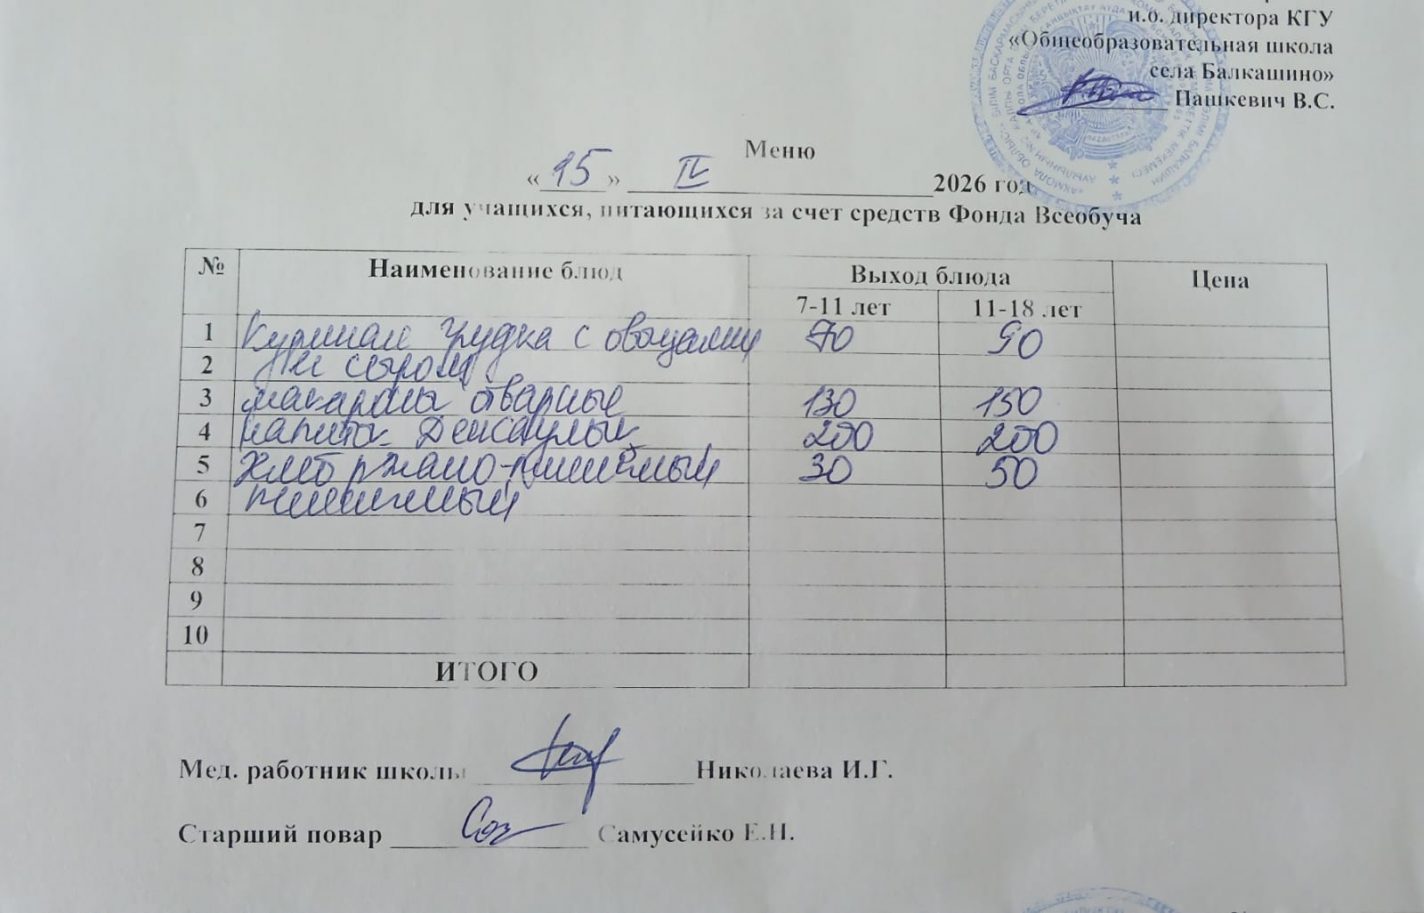 и.о. директора КГУ
«Общеобразовательная школа
села Балкашино»
Пашкевич В.С.
Меню
«15» IV 2026 год
для учащихся, питающихся за счет средств Фонда Всеобуча
№ Наименование блюд Выход блюда Цена
7-11 лет 11-18 лет
1 Куриная грудка с овощами 70 90
2 и сыром
3 макароны отварные 130 150
4 напиток Денсаулык 200 200
5 хлеб ржано-пшеничный 30 50
6 пшеничный
7
8
9
10
ИТОГО
Мед. работник школы Николаева И.Г.
Старший повар Самусейко Е.Н.